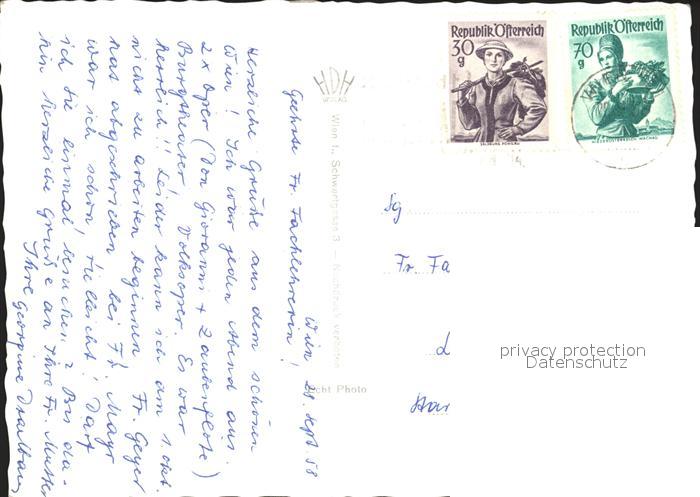 Wien 28. Sept. 58
Geehrte Fr. Fachlehrerin!
Herzliche Grüße aus dem schönen
Wien! Ich war jeden Abend aus.
2 x Oper (Don Giovanni + Zauberflöte)
Burgtheater Volksoper. Es war
herrlich!! Leider kann ich am 1. Okt.
nicht zu arbeiten beginnen Fr. Geyer
hat abgeschrieben bei Fr. Mayr
war ich schon vielleicht! Darf
ich Sie einmal besuchen? Bis da-
hin herzliche Grüße an Ihre Fr. Mutter
Ihre Georgine
HDH
VERLAG
Wien I., Schwertgasse 3 — Nachdruck verboten
Echt Photo
Republik Österreich
30 g
SALZBURG PONGAU
Republik Österreich
70 g
NIEDERÖSTERREICH WACHAU
Fr. Fa
privacy protection
Datenschutz